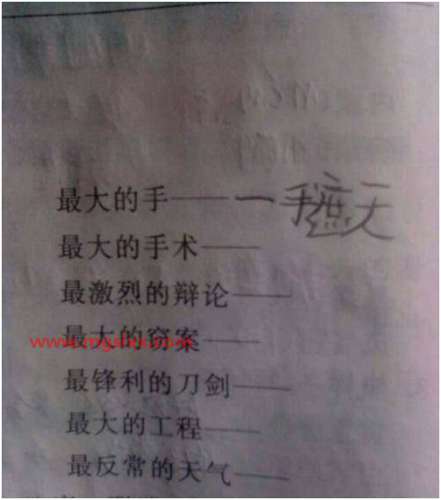 最大的手——一手遮天
最大的手术——
最激烈的辩论——
最大的窃案——
最锋利的刀剑——
最大的工程——
最反常的天气——